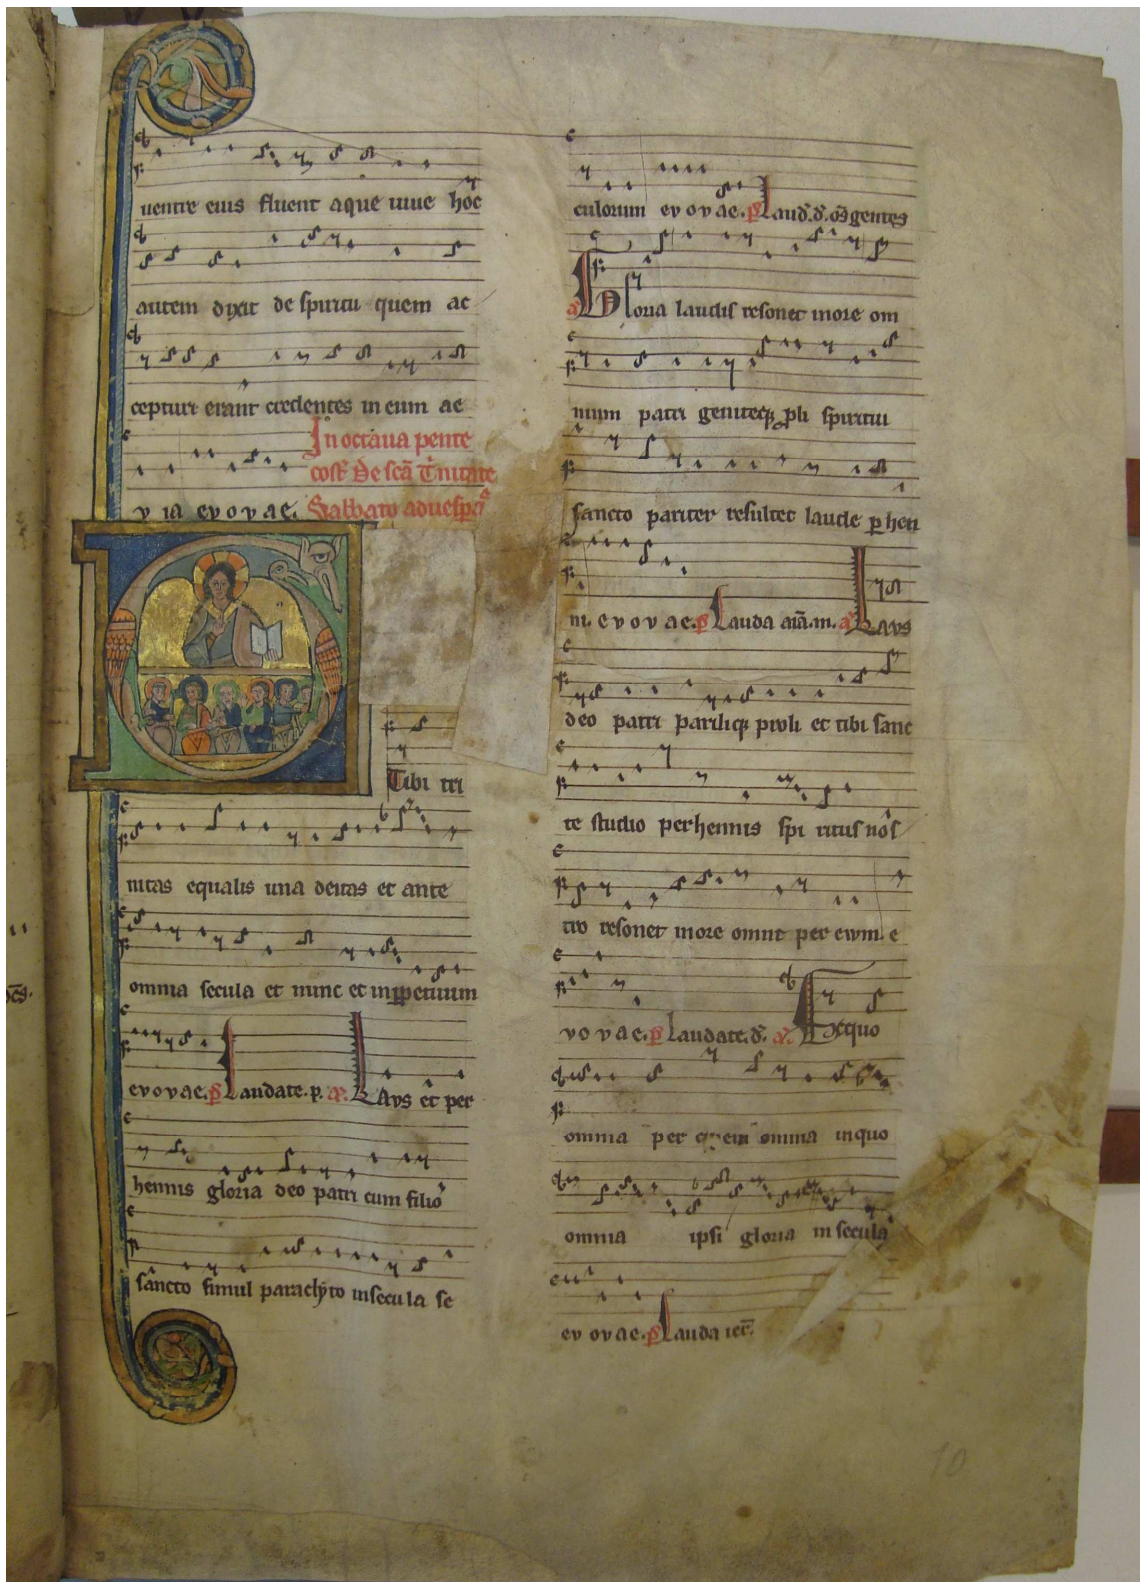 uentre eius fluent aque uiue hoc
autem dixit de spiritu quem ac
cepturi erant credentes in eum ae
v ia evovae. In octaua pente
cost̄ De scā T̾nitate
Sabbato ad uesp̄a
Tibi tri
nitas equalis una deitas et ante
omnia secula et nunc et inꝑpetuum
evovae. p̄ Laudate. p. a᷒. LAVS et per
hennis gloria deo patri cum filio
sancto simul paraclyto insecula se
culorum evovae. p̄ Laud̄. d̄. om̄s gentes
a᷒ Gloria laudis resonet in ore om
nium patri geniteq; ꝓli spiritui
sancto pariter resultet laude ꝑhen
ni. evovae. p̄ Lauda aīa. m. a᷒ LAVS
deo patri parilique proli et tibi sanc
te studio perhennis spi ritus nos
tro resonet in ore omni per ewm. e
vovae. p̄ Laudate. d̄. a᷒. Ex quo
omnia per quem omnia inquo
omnia ipsi gloria in secula
evovae. p̄ Lauda ier̄.
10